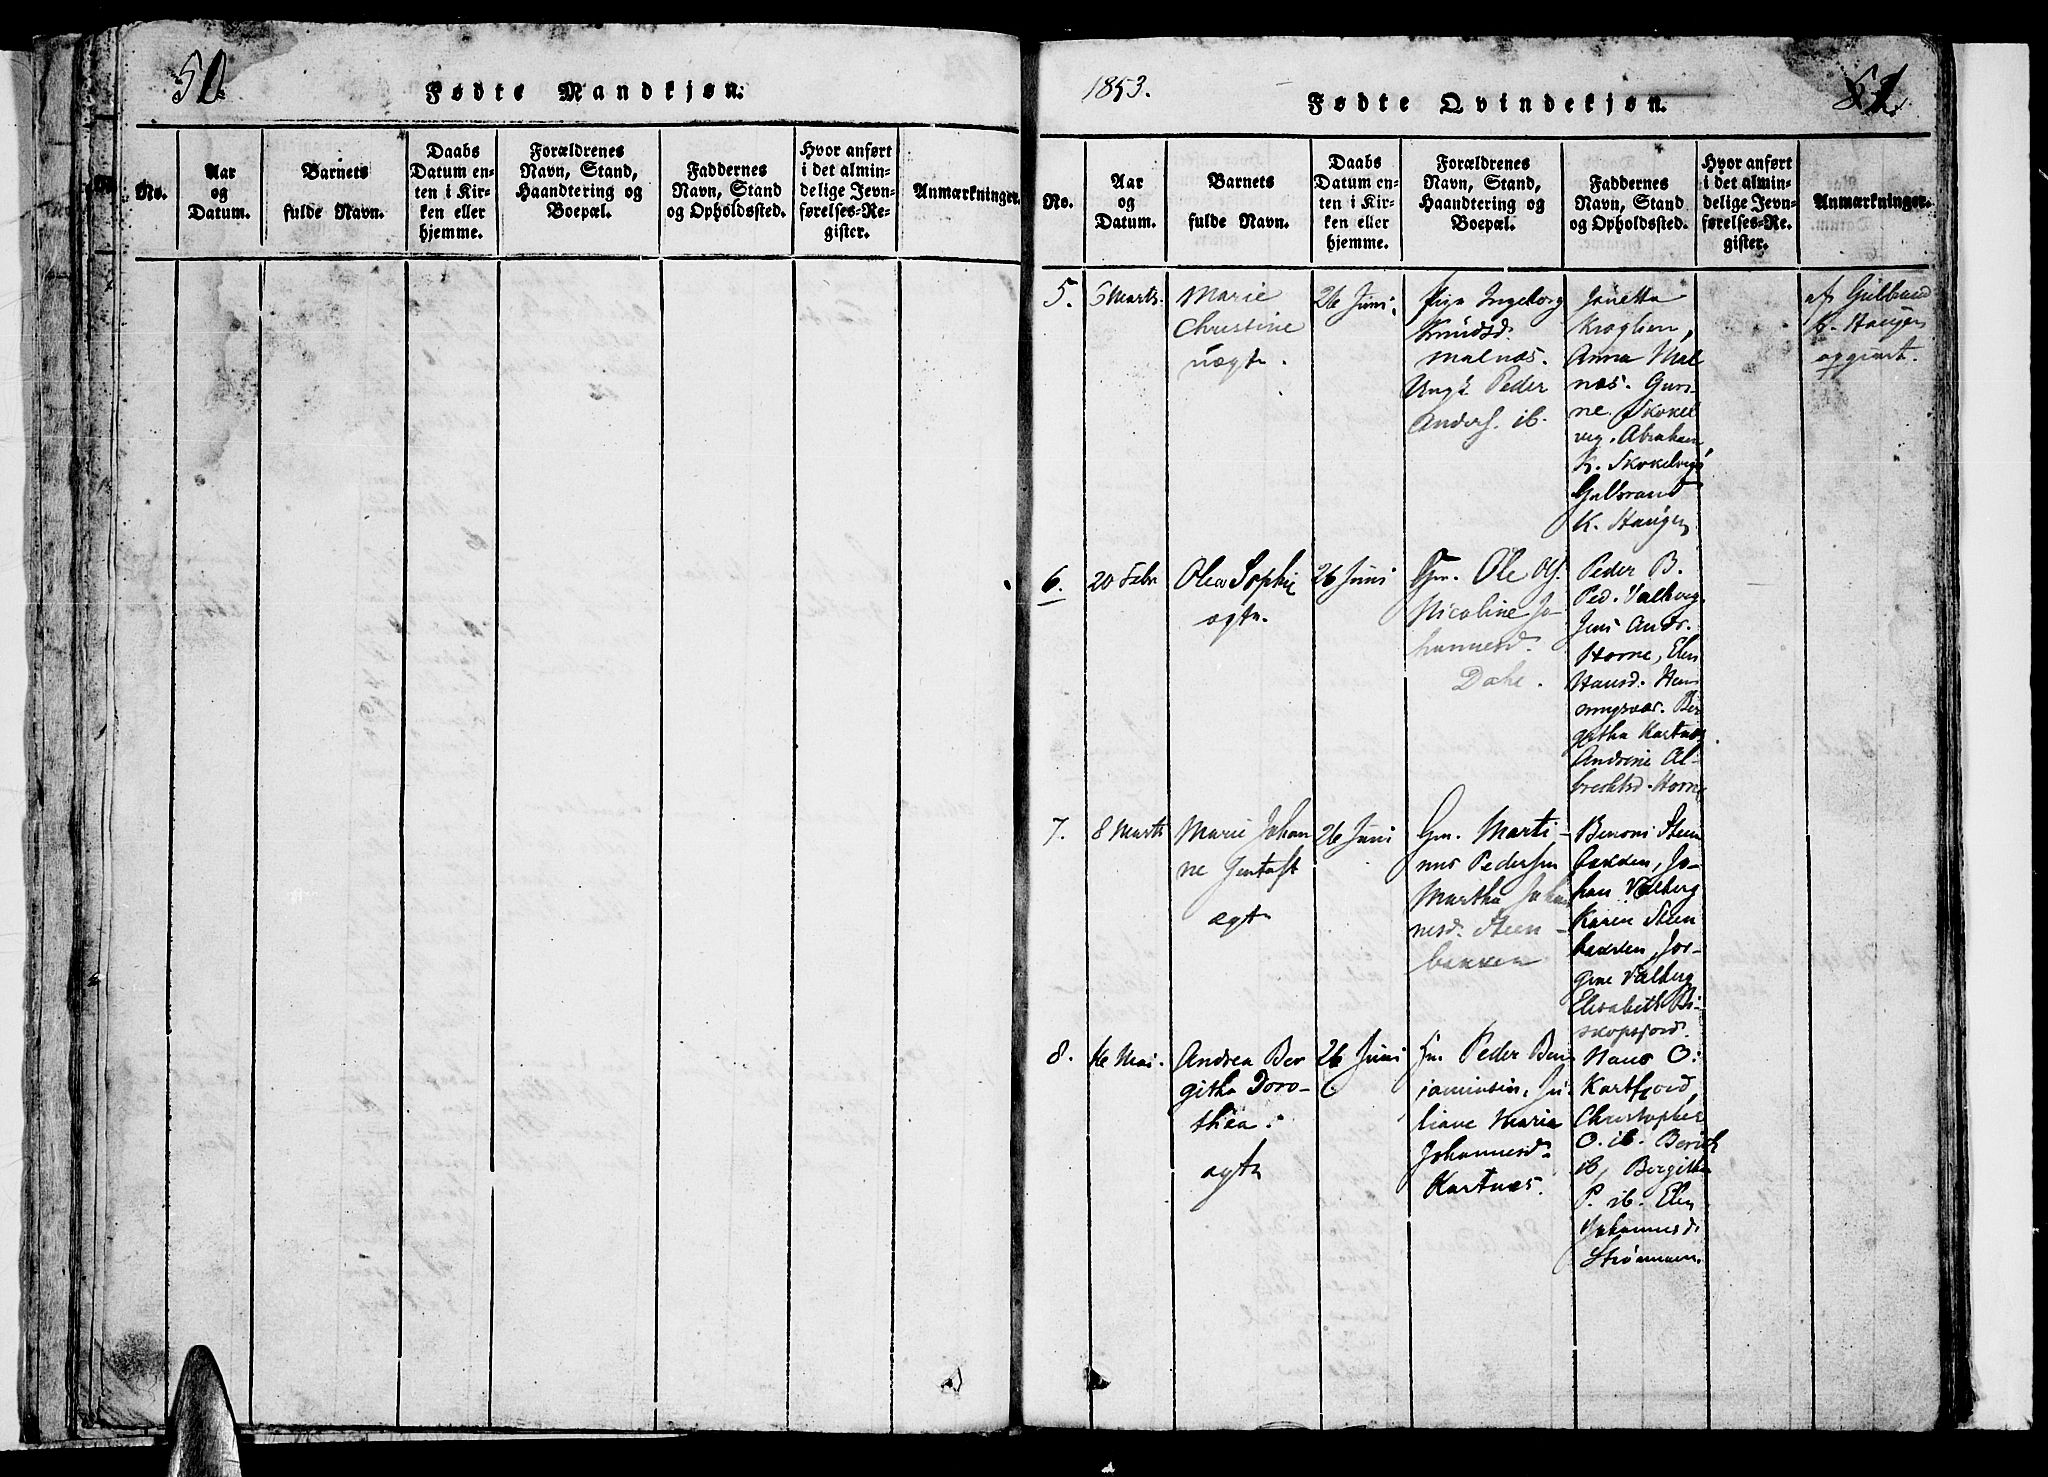 50.
Fødte Mandkjøn.
No.
Aar
og
Datum.
Barnets
fulde Navn.
Daabs
Datum en-
ten i Kir-
ken eller
hjemme.
Forældrenes
Navn, Stand,
Haandtering og
Boepæl.
Faddernes
Navn, Stand
og Opholdssted.
Hvor anført
i det almin-
delige Jevn-
førelses-Re-
gister.
Anmærkninger.
1853.
Fødte Qvindekjøn.
51.
No.
Aar
og
Datum.
Barnets
fulde Navn.
Daabs
Datum en-
ten i Kir-
ken eller
hjemme.
Forældrenes
Navn, Stand,
Haandtering og
Boepæl.
Faddernes
Navn, Stand
og Opholdssted.
Hvor anført
i det almin-
delige Jevn-
førelses-Re-
gister.
Anmærkninger.
5.
6 Marts.
Marie
Christine
uægte.
26 Juni.
Pige Ingeborg
Knudsd.
Malnæs.
Ungk. Peder
Anders. ib.
Janetta
Kroglien,
Anna Mal
næs. Gun-
ne Skokel
vig. Abraham
K. Skokelvig
Gulbrand
K. Haugen
af Gulbrand
K. Haugen
opgivet.
6.
20 Febr
Olea Sophie
ægte.
26 Juni
Gm. Ole Ols.
Nicoline Jo
hannesd.
Dahl.
Peder B.
Ped. Valhveg.
Jens Andr.
Horne, Elen
Hansd. Hen
ningsvær. Ber
githa Kartnæs
Andrine Al-
brechtsd. Horne
7.
8 Marts
Marie Johan
ne Gustafst
ægte
26 Juni
Gm. Marti-
nus Pedersen
Martha Johan
nesd. Steen-
bakken
Benoni Steen
bakken, Jo-
han Valberg
Karen Steen
bakken, Jor-
gine Valberg
Elisabeth Bi-
skopsfjord.
8.
16 Mai.
Andrea Ber
githa Doro-
thea.
ægte
26 Juni
Gm. Peder Ben
jaminsen, Ju-
liane Maria
Johannesd.
Kartnæs.
Hans O.
Kartfjord
Christopher
O. ib. Berith
ib, Bergitha
P. ib. Elen
Johannesd.
Strømmen.